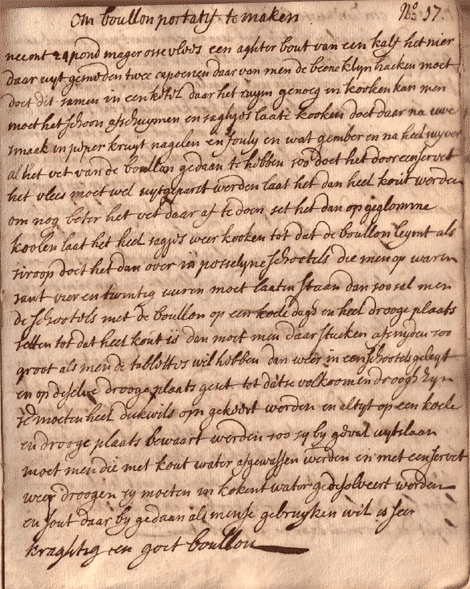 Om boullon portatif te maken No 37.
neemt 24 pond mager osse vlees een aghter bout van een kalf het nier
daar uyt gesneden twee capoenen daar van men de beene klyn hacken moet
doet dit samen in een ketel daar het ruym genoeg in kooken kan men
moet het schoon afschuymen en saghjes laate kooken doet daar na uwe
smaak in peper kruyt nagelen en fouly en wat gember en na heel suyver
al het vet van de boullon gedaan te hebben soo doet het door een servet
het vlees moet wel uytgeparst werden laat het dan heel kout werden
om nog beter het vet daar af te doen set het dan op geglomme
koolen laat het heel sagjes weer kooken tot dat de boullon leymt als
siroop doet het dan over in posselyne schootels die men op waren
sant vier en twintig uuren moet laaten staan dan soo sal men
de schootels met de boullon op een koele dagh en heel drooge plaats
setten tot dat heel kout is dan moet men daar stucken afsnyden soo
groot als men de tablettes wil hebben dan weer in een schootel geleyt
en op deselve drooge plaats geset tot datse volkoomen droogh zyn
se moeten heel dickwils om gekeert worden en altyt op een koele
en drooge plaats bewaart werden soo sy by geval uytslaan
moet men die met kout water afgewassen werden en met een servet
weer droogen sy moeten in kokent water geresolveert worden
en sout daar by gedaan als mense gebruyken wil is seer
kraghtig en goet boullon